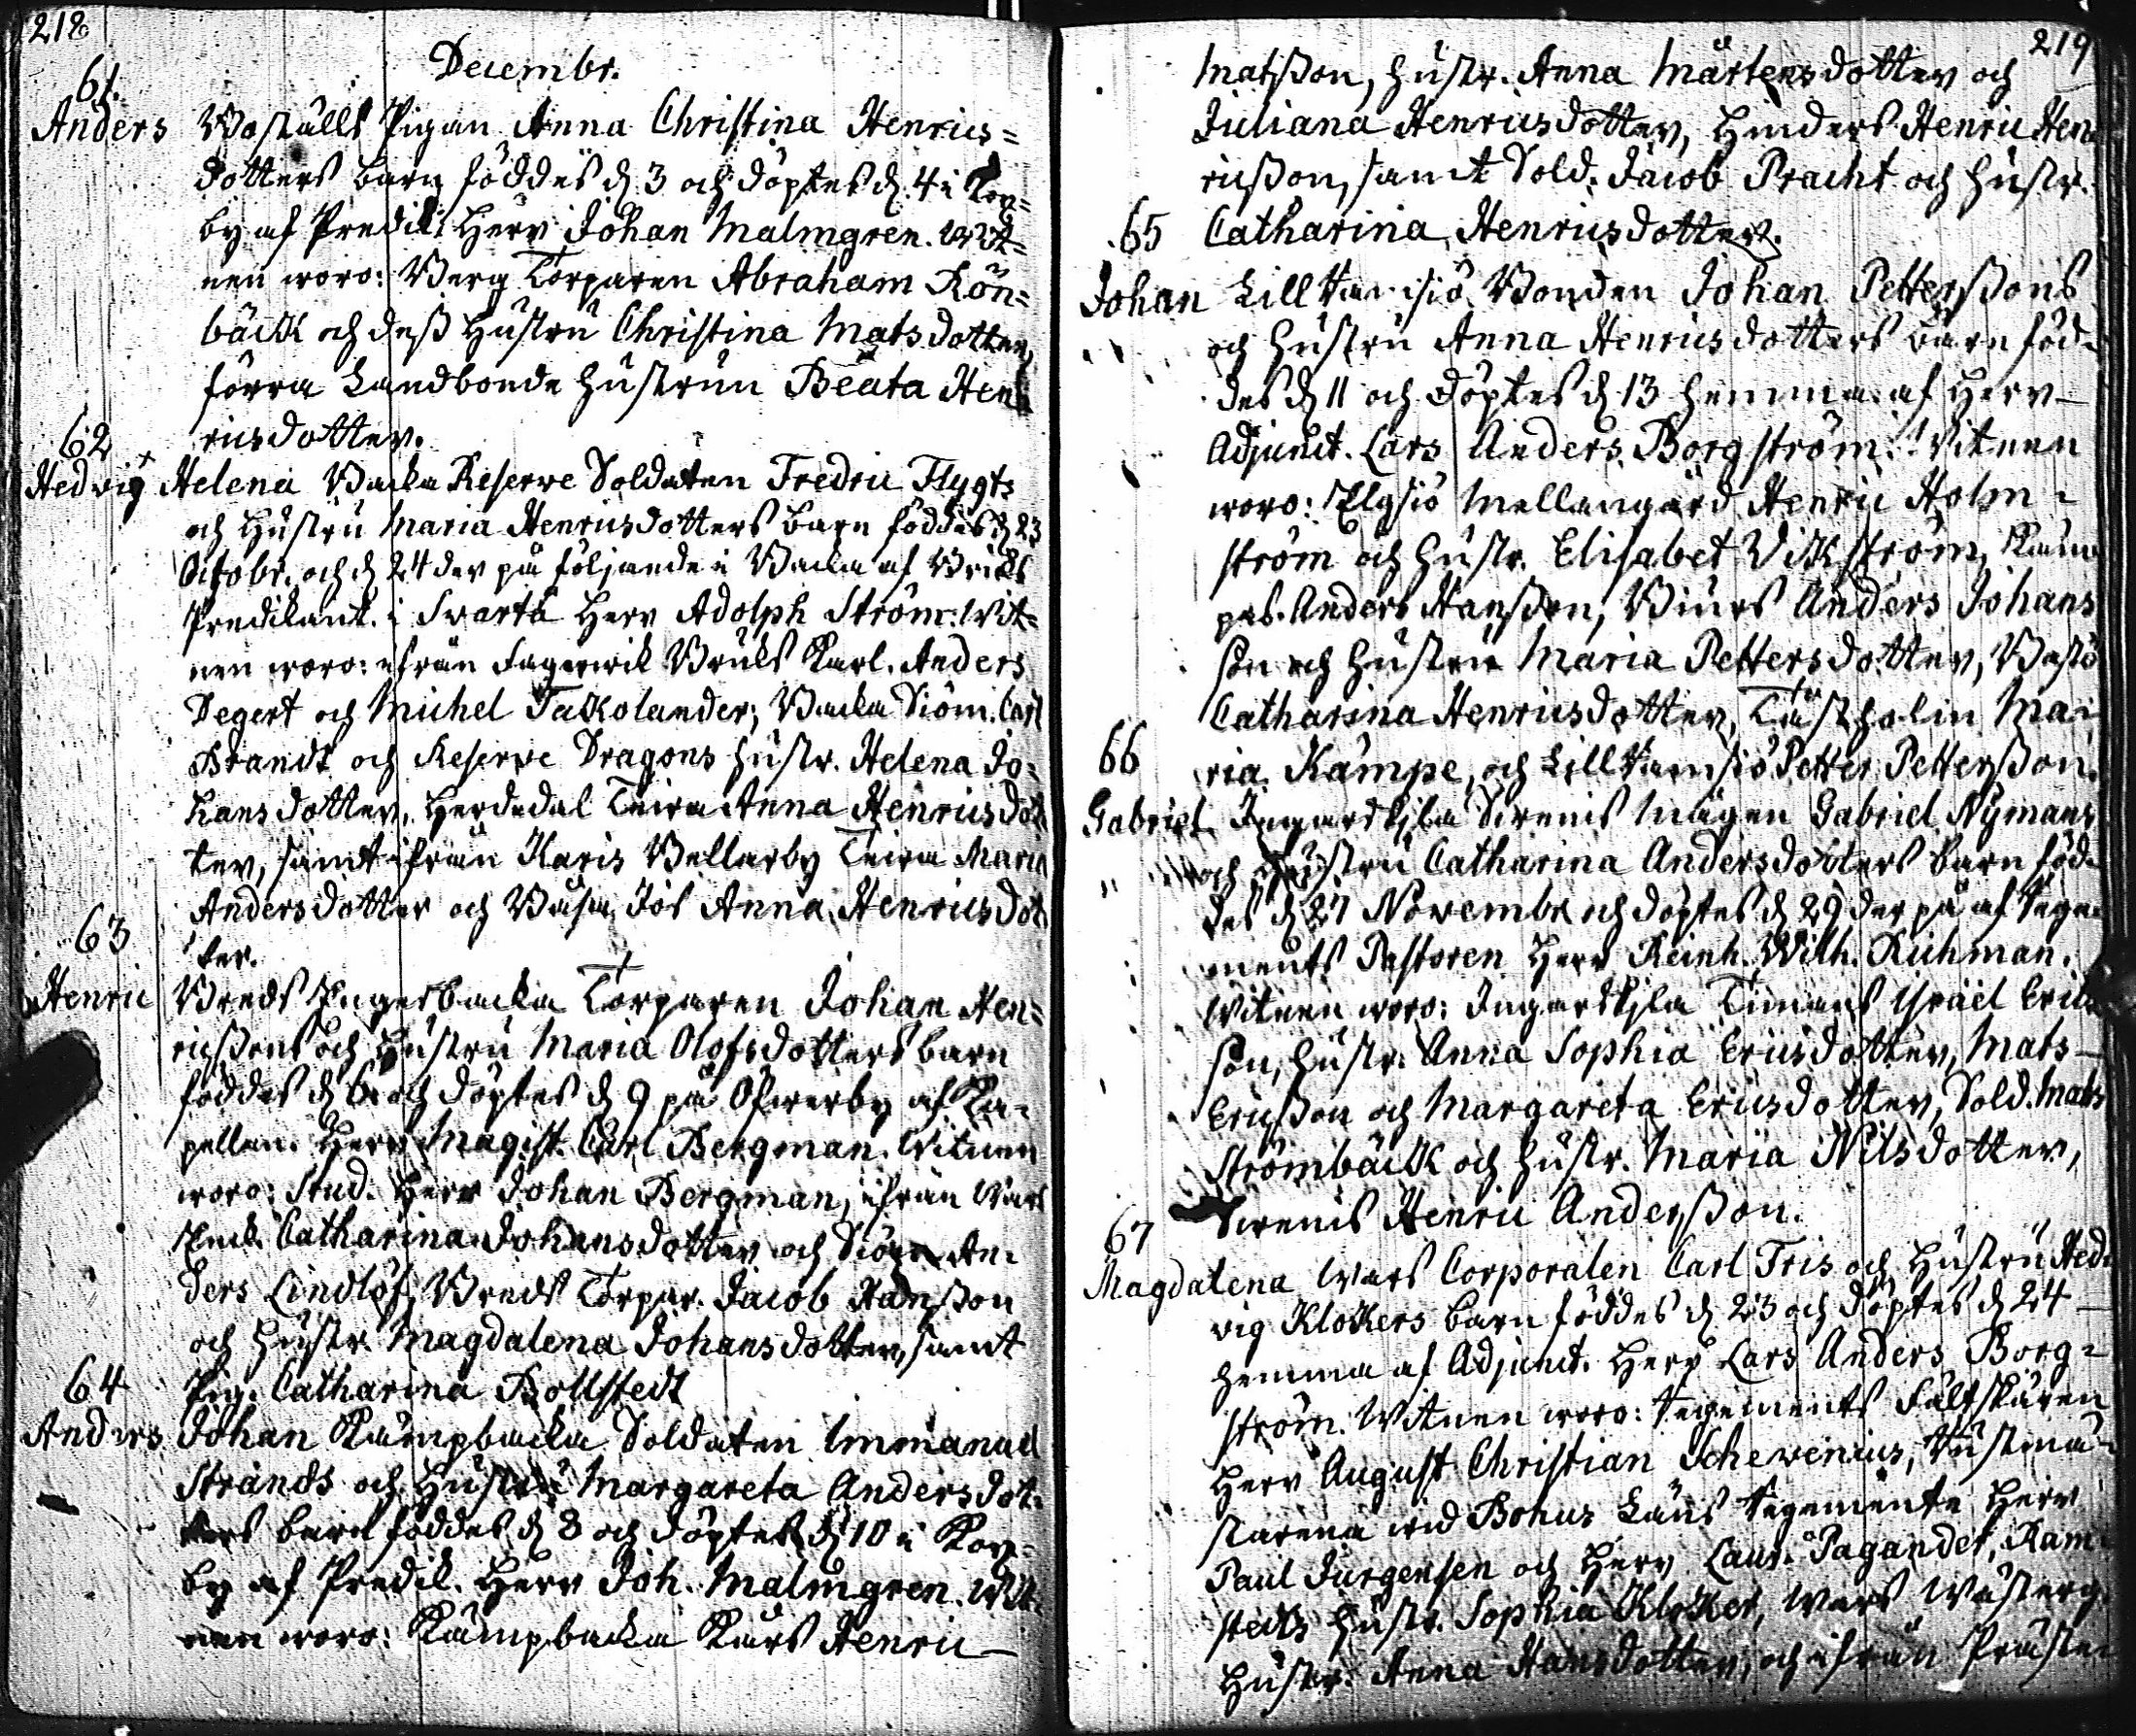 218
Decembr.
61.
Anders Boställs Pigan Anna Christina Henrics=
dotters barn föddes d. 3 och döptes d. 4 i Kor=
by af Predik: Herr Johan Malmgren. Wit=
nen woro: Berg Torparen Abraham Rön=
bäck och dess Hustru Christina Matsdotter,
förra Landbonde Hustrun Beata Hen
ricsdotter.
62
Hedvig Helena Backa Reserve Soldaten Fredric Flygts
och Hustru Maria Henricsdotters barn föddes d. 23
Octobr. och d. 24 der på följande i Backa af Bruks
Predikant. i Svartå Herr Adolph Ström. Wit=
nen woro: ifrån Fagerwik Bruks Karl. Anders
Degert och Michel Tackolander; Backa Siöm. Carl
Brandt och Reserve Dragons Hustr. Helena Jo=
hansdotter, Herdedal Anna Henricsdot
ter, samt ifrån Karis Bellarby Maria
Andersdotter och Anna Henricsdot
ter.
63
Henric Breds Ingersbacka Torparen Johan Hen=
ricssons och Hustru Maria Olofsdotters barn
föddes d. 6 och döptes d. 9 på Öfwerby af Ka=
pellan. Herr Magist. Carl Bergman. Witnen
woro: Stud. Herr Johan Bergman, ifrån Wars
Catharina Johansdotter och Siöm. An=
ders Lindlöf, Breds Torpar. Jacob Hansson
och Hustr. Magdalena Johansdotter, samt
Pig. Catharina Bollstedt
64
Anders Johan Kämpbacka Soldaten Immanuel
Strands och Hustru Margareta Andersdot=
ters barn föddes d. 8 och döptes d. 10 i Kor=
by af Predik. Herr Joh. Malmgren. Wit=
nen woro: Kämpbacka Kurs Henric
219
Matsson, Hustr. Anna Mårtensdotter och
Juliana Henricsdotter, Hinders Henric Hen
ricsson, samt Sold. Jacob Pracht och Hustr.
Catharina Henricsdotter.
65
Johan Lill Bonden Johan Petterssons
och Hustru Anna Henricsdotters barn föd=
des d. 11 och döptes d. 13 hemma af Herr
Adjunct. Lars Anders Borgström. Witnen
woro: Elgsiö Mellangård Henric Holm=
ström och Hustr. Elisabet Vickström,
Anders Hansson, Biurs Anders Johans
son och Hustru Maria Pettersdotter, Basiö
Catharina Henricsdotter, Ma=
ria Kämpe, och Lill Petter Pettersson.
66
Gabriel Ingarskila Svenis Mågen Gabriel Nymans
och Hustru Catharina Andersdotters barn föd=
des d. 27 Novembr. och döptes d. 29 der på af Rege=
ments Pastoren Herr Reinh. Wilh. Richman.
Witnen woro: Ingarskila Timans Israel Erics
son, Hustr. Anna Sophia Ericsdotter, Mats
Ericsson och Margareta Ericsdotter, Sold. Mats
Strömbäck och Hustr. Maria Nilsdotter,
Svenis Henric Andersson.
67
Magdalena Wars Corporalen Carl Fris och Hustru Hed=
vig Klockers barn föddes d. 23 och döptes d. 24
hemma af Adjunct. Herr Lars Anders Borg=
ström. Witnen woro: Regements Fältskären
Herr August Christian Schevenius, Rustmä=
starena wid Bohus Läns Regemente Herr
Paul Jürgensen och Herr Laur. Pagander, Ram
stedts Hustr. Sophia Klocker, Wars
Hustr. Anna Hansdotter, och ifrån Präste=